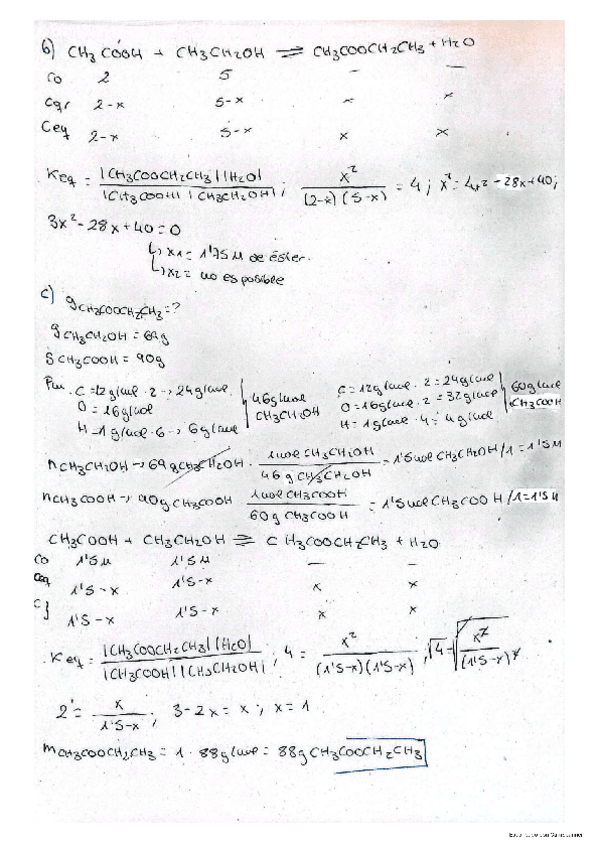 b) CH3COOH + CH3CH2OH ⇌ CH3COOCH2CH3 + H2O
Co 2 5 - -
Cgr 2-x 5-x x x
Ceq 2-x 5-x x x
Keq = |CH3COOCH2CH3||H2O| / |CH3COOH||CH3CH2OH| ; x² / (2-x)(5-x) = 4 ; x² = 4x² - 28x + 40 ;
3x² - 28x + 40 = 0
↳ x1 = 1'75 M de éster.
↳ x2 = no es posible
c) gCH3COOCH2CH3 = ?
gCH3CH2OH = 69g
gCH3COOH = 90g
Pm. C = 12g/mol · 2 → 24g/mol. C = 12g/mol · 2 = 24g/mol
O = 16g/mol 46g/mol CH3CH2OH O = 16g/mol · 2 = 32g/mol 60g/mol CH3COOH
H = 1g/mol · 6 → 6g/mol H = 1g/mol · 4 = 4g/mol
nCH3CH2OH → 69gCH3CH2OH · 1mol CH3CH2OH / 46g CH3CH2OH = 1'5mol CH3CH2OH/1 = 1'5M
nCH3COOH → 90g CH3COOH 1mol CH3COOH / 60g CH3COOH = 1'5mol CH3COOH/1 = 1'5M
CH3COOH + CH3CH2OH ⇌ CH3COOCH2CH3 + H2O
Co 1'5M 1'5M - -
Ceq 1'5-x 1'5-x x x
Cf 1'5-x 1'5-x x x
Keq = |CH3COOCH2CH3||H2O| / |CH3COOH||CH3CH2OH| ; 4 = x² / (1'5-x)(1'5-x) ; √4 = √x² / (1'5-x)²
2 = x / 1'5-x ; 3-2x = x ; x = 1
mCH3COOCH2CH3 = 1 · 88g/mol = 88g CH3COOCH2CH3